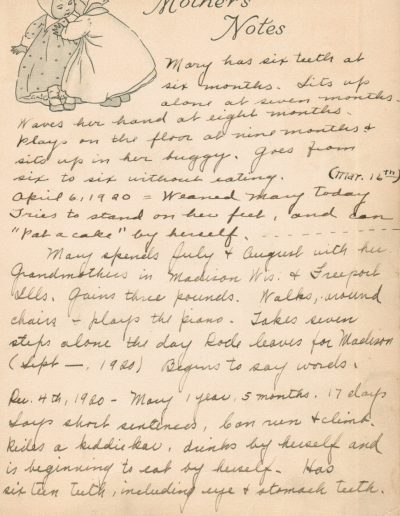 Mother's
Notes
Mary has six teeth at
six months. Sits up
alone at seven months.
Waves her hand at eight months.
Plays on the floor at nine months &
sits up in her buggy. Goes from
six to six without eating. (Mar. 16th)
April 6, 1920 = Weaned Mary today
Tries to stand on her feet, and can
"Pat a cake" by herself.
Mary spends July & August with her
Grandmothers in Madison Wis. & Freeport
Ills. Gains three pounds. Walks, around
chairs - plays the piano. Takes seven
steps alone the day Rods leaves for Madison
(Sept —, 1920) Begins to say words.
Dec. 4th, 1920 - Mary 1 year, 5 months. 17 days
Says short sentences, Can run & climb.
Rides a kiddiekar, drinks by herself and
is beginning to eat by herself. Has
sixteen teeth, including eye & stomach teeth.